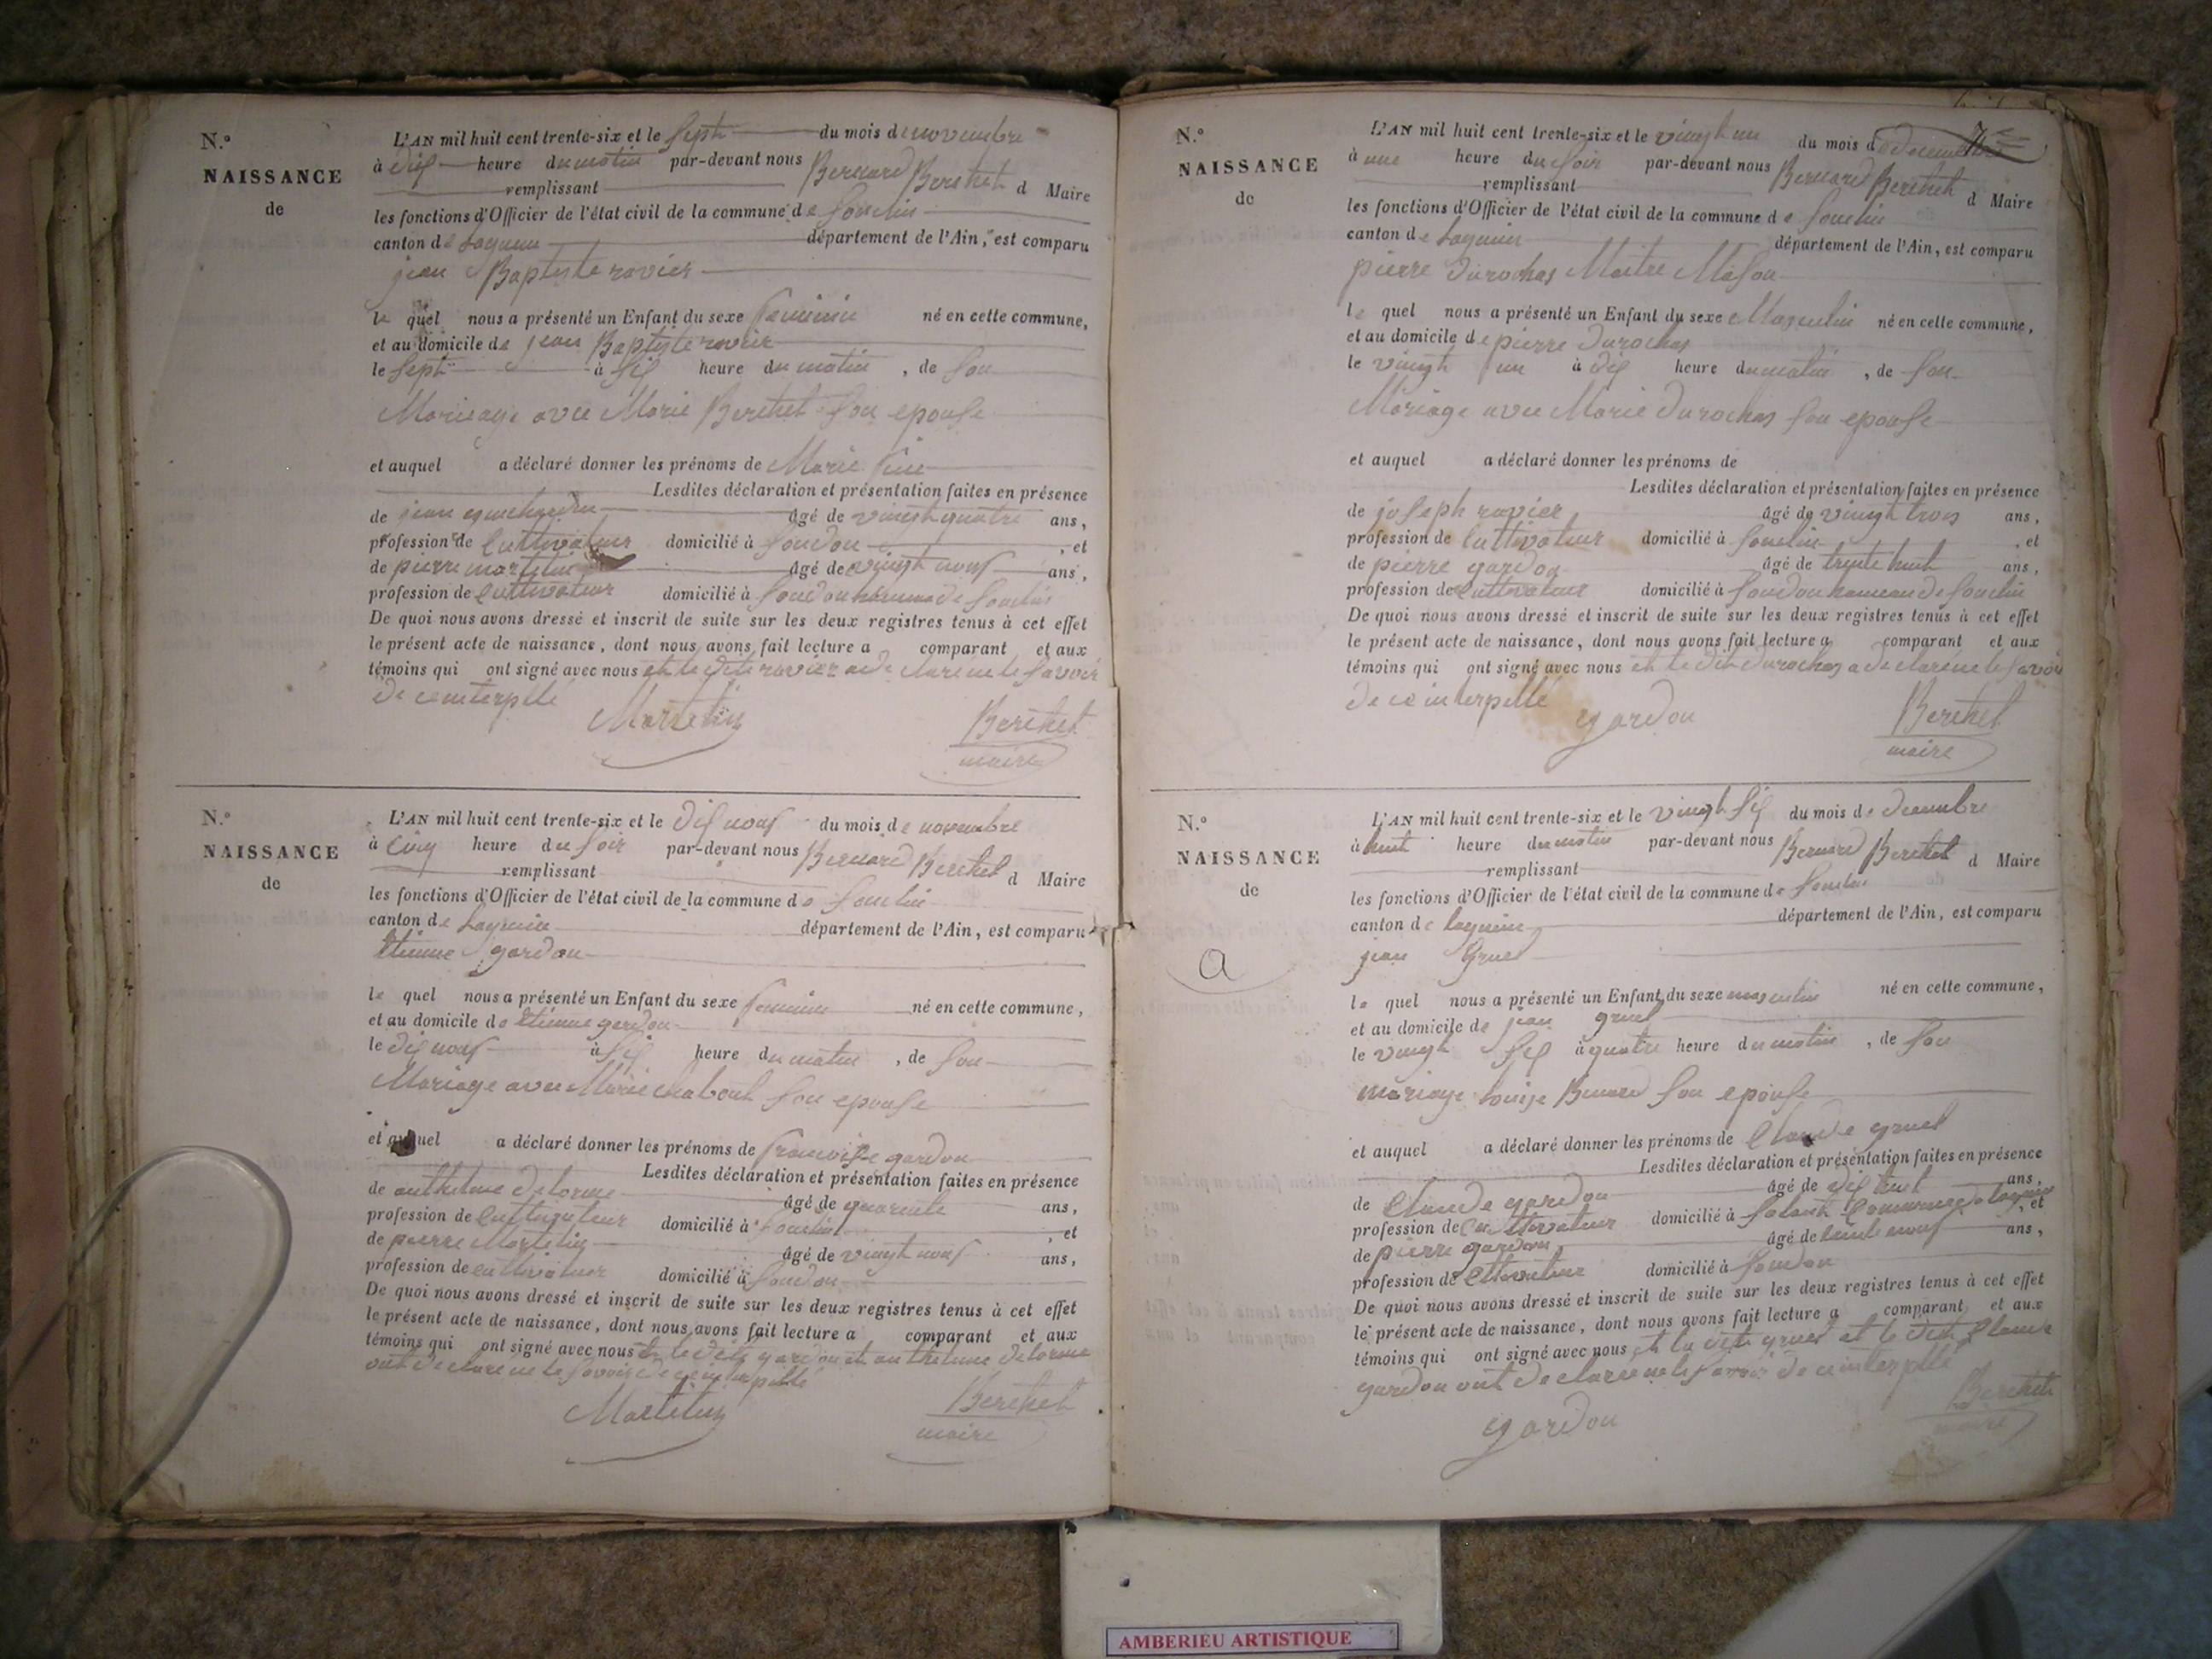 N.°
NAISSANCE
de
L'AN mil huit cent trente-six et le Sept du mois de novembre
à dix heure du matin par-devant nous Bernard Berthet d Maire
remplissant
les fonctions d'Officier de l'état civil de la commune de Souclin
canton de Lagnieu département de l'Ain, est comparu
jean Baptiste ravier
le quel nous a présenté un Enfant du sexe feminin né en cette commune,
et au domicile de jean Baptiste ravier
le Sept à Six heure du matin, de Son
Mariage avec Marie Berthet Son epouse
et auquel a déclaré donner les prénoms de Marie
Lesdites déclaration et présentation faites en présence
de jean âgé de vingt quatre ans,
profession de Cultivateur domicilié à Soudon, et
de pierre martelin âgé de vingt nouf ans,
profession de Cultivateur domicilié à Soudon hameau de Souclin
De quoi nous avons dressé et inscrit de suite sur les deux registres tenus à cet effet
le présent acte de naissance, dont nous avons fait lecture a comparant et aux
témoins qui ont signé avec nous et le dit ravier a declaré ne le Savoir
de ce interpelé
Martelin Berthet
maire
N.°
NAISSANCE
de
L'AN mil huit cent trente-six et le dix nouf du mois de novembre
à Cinq heure du Soir par-devant nous Bernard Berthet d Maire
remplissant
les fonctions d'Officier de l'état civil de la commune de Souclin
canton de Lagnieu département de l'Ain, est comparu
Etienne gardon
le quel nous a présenté un Enfant du sexe feminin né en cette commune,
et au domicile de Etienne gardon
le dix nouf à Six heure du matin, de Son
Mariage avec Marie chabout Son epouse
et auquel a déclaré donner les prénoms de francoise gardon
Lesdites déclaration et présentation faites en présence
de anthelme delorme âgé de quarente ans,
profession de Cultivateur domicilié à Souclin, et
de pierre Martelin âgé de vingt nouf ans,
profession de cultivateur domicilié à Soudon
De quoi nous avons dressé et inscrit de suite sur les deux registres tenus à cet effet
le présent acte de naissance, dont nous avons fait lecture a comparant et aux
témoins qui ont signé avec nous et le dit gardon et anthelme delorme
ont declaré ne le Savoir de ce interpellé
Martelin Berthet
maire
N.°
NAISSANCE
de
L'AN mil huit cent trente-six et le vingt un du mois de decembre
à une heure du Soir par-devant nous Bernard Berthet d Maire
remplissant
les fonctions d'Officier de l'état civil de la commune de Souclin
canton de Lagnieu département de l'Ain, est comparu
pierre durochas Maitre Mason
le quel nous a présenté un Enfant du sexe Masculin né en cette commune,
et au domicile de pierre durochas
le vingt un à dix heure du matin, de Son
Mariage avec Marie durochas Son epouse
et auquel a déclaré donner les prénoms de
Lesdites déclaration et présentation faites en présence
de joseph ravier âgé de vingt trois ans,
profession de Cultivateur domicilié à Souclin, et
de pierre gardon âgé de trente huit ans,
profession de Cultivateur domicilié à Soudon hameau de Souclin
De quoi nous avons dressé et inscrit de suite sur les deux registres tenus à cet effet
le présent acte de naissance, dont nous avons fait lecture a comparant et aux
témoins qui ont signé avec nous et le dit durochas a declaré ne le Savoir
de ce interpellé
gardon Berthet
maire
N.°
NAISSANCE
de
a
L'AN mil huit cent trente-six et le vingt Six du mois de decembre
à huit heure du matin par-devant nous Bernard Berthet d Maire
remplissant
les fonctions d'Officier de l'état civil de la commune de Souclin
canton de lagnieu département de l'Ain, est comparu
jean gruel
le quel nous a présenté un Enfant du sexe masculin né en cette commune,
et au domicile de jean gruel
le vingt Six à quatre heure du matin, de Son
mariage Louise Bernard Son epouse
et auquel a déclaré donner les prénoms de Claude gruel
Lesdites déclaration et présentation faites en présence
de Claude gardon âgé de dix huit ans,
profession de Cultivateur domicilié à Commune de lagnieu, et
de pierre gardon âgé de trente nouf ans,
profession de Cultivateur domicilié à Soudon
De quoi nous avons dressé et inscrit de suite sur les deux registres tenus à cet effet
le présent acte de naissance, dont nous avons fait lecture a comparant et aux
témoins qui ont signé avec nous et le dit gruel et le dit Claude
gardon ont declaré ne le Savoir de ce interpellé
gardon Berthet
maire
AMBERIEU ARTISTIQUE